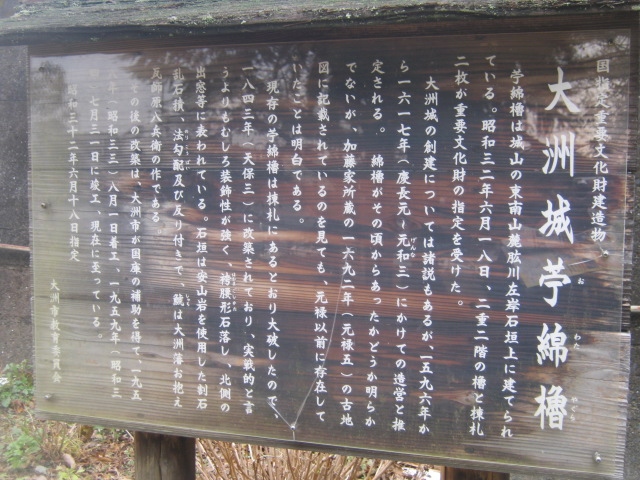 国指定重要文化財建造物
大洲城苧綿櫓
お わた やぐら
苧綿櫓は城山の東南山麓肱川左岸石垣上に建てられ
ている。昭和三二年六月一八日、二重二階の櫓と棟札
二枚が重要文化財の指定を受けた。
大洲城の創建については諸説もあるが、一五九六年か
ら一六一七年(慶長元〜元和三)にかけての造営と推
げんな
定される。綿櫓がその頃からあったかどうか明らか
でないが、加藤家所蔵の一六九二年(元禄五)の古地
図に記載されているのを見ても、元禄以前に存在して
いたことは明白である。
現存の苧綿櫓は棟札にあるとおり大破したので
一八四三年(天保三)に改築されており、実戦的と言
うよりもむしろ装飾性が強く、袴腰形石落し、北側の
出窓等に表われている。石垣は安山岩を使用した割石
乱石積、法勾配及び反り付きで、鯱は大洲藩お抱え
瓦師原八兵衛の作である
その後の改築は、大洲市が国庫の補助を得て一九五
年(昭和三三)八月一日着工、一九五九年(昭和三
七月三一日に竣工、現在に至っている。
昭和三十二年六月十八日指定
大洲市教育委員会